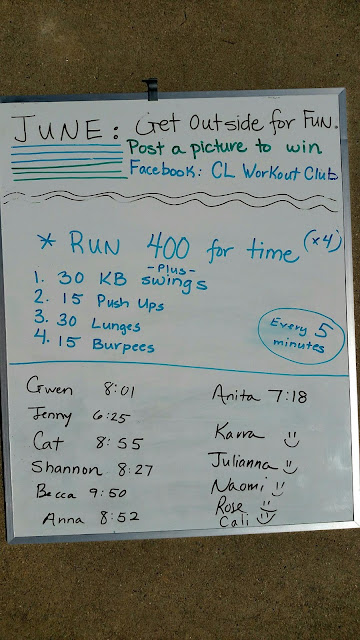 JUNE: Get Outside for FUN.
Post a picture to win
Facebook: CL Workout Club
* RUN 400 for time (x4)
- Plus -
1. 30 KB swings
2. 15 Push Ups
3. 30 Lunges
4. 15 Burpees
Every 5
minutes
Gwen 8:01
Jenny 6:25
Cat 8:55
Shannon 8:27
Becca 9:50
Anna 8:52
Anita 7:18
Karra
Julianna
Naomi
Rose
Cali